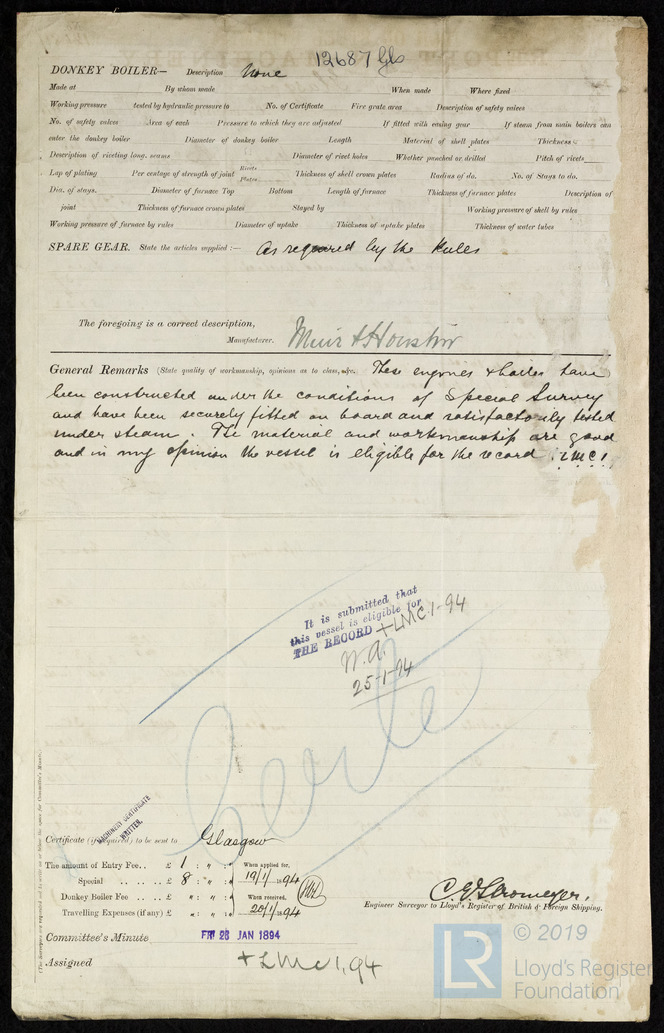 12687 Gls
DONKEY BOILER— Description None
Made at By whom made When made Where fixed
Working pressure tested by hydraulic pressure to No. of Certificate Fire grate area Description of safety valves
No. of safety valves Area of each Pressure to which they are adjusted If fitted with easing gear If steam from main boilers can
enter the donkey boiler Diameter of donkey boiler Length Material of shell plates Thickness
Description of riveting long. seams Diameter of rivet holes Whether punched or drilled Pitch of rivets
Lap of plating Per centage of strength of joint Rivets Plates Thickness of shell crown plates Radius of do. No. of Stays to do.
Dia. of stays. Diameter of furnace Top Bottom Length of furnace Thickness of furnace plates Description of
joint Thickness of furnace crown plates Stayed by Working pressure of shell by rules
Working pressure of furnace by rules Diameter of uptake Thickness of uptake plates Thickness of water tubes
SPARE GEAR. State the articles supplied:— As required by the Rules
The foregoing is a correct description,
Manufacturer. Muir & Houston
General Remarks (State quality of workmanship, opinions as to class, &c. These engines & boilers have
been constructed under the conditions of Special Survey
and have been securely fitted on board and satisfactorily tested
under steam. The material and workmanship are good
and in my opinion the vessel is eligible for the record. LMC 1.
It is submitted that
this vessel is eligible for
THE RECORD + LMC 1-94
W.A.
25-1-94
MACHINERY CERTIFICATE
WRITTEN.
Certificate (if required) to be sent to Glasgow
The amount of Entry Fee.. £ 1 : " : " When applied for,
Special .. .. .. £ 8 : " : " 19/1/1894
Donkey Boiler Fee .. .. £ " : " : " When received,
Travelling Expenses (if any) £ " : " : " 20/1/1894
C.E. Stromeyer,
Engineer Surveyor to Lloyd's Register of British & Foreign Shipping.
Committee's Minute FRI 26 JAN 1894
Assigned + LMC 1.94
(The Surveyors are requested not to write on or below the space for Committee's Minute.)
LR
© 2019
Lloyd's Register
Foundation